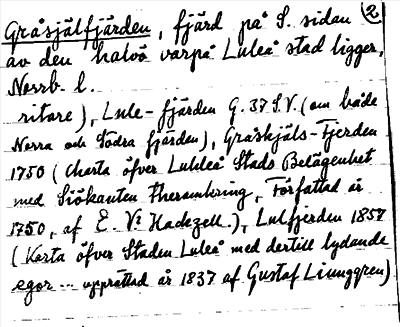 Gråsjälfjärden, fjärd på S. sidan 2
av den halvö varpå Luleå stad ligger,
Norrb. l.
ritare), Lule-fjärden G. 37 S.V. (om både
Norra och Södra fjärden), Gråskjäls-Fjerden
1750 (Charta öfver Luhleå Stads Belägenhet
med Siökanten theromkring, Författad år
1750, af E. V: Hackzell.), Lulfjerden 1857
(Karta öfver Staden Luleå med dertill lydande
egor ... upprättad år 1837 af Gustaf Ljunggren)